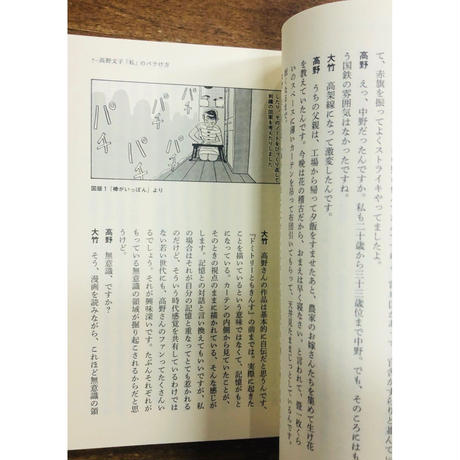 て、赤旗を振ってよくストライキやってましたよ。
高野 えっ、中野だったんですか。私も二十歳から三十三歳位まで中野。でも、そのころにはも
う国鉄の雰囲気はなかったですね。
大竹 高架線になって激変したんです。
高野 うちの父親は、工場から帰って夕飯をすませたあと、農家のお嫁さんたちを集めて生け花
を教えていたんです。今晩は花の稽古だから、おまえは早く寝なさい、と言われて、畳一枚くら
いのスペースに薄いカーテンを吊って布団引いてもらって、天井見たままじっとしているんです。
7―高野文子「私」のバラけ方
したり、そのノートをひっくり返して
刺繍の図案を考えたりしました
パチ
パチ
パチ
パチ
図版1「棒がいっぽん」より
大竹 高野さんの作品は基本的に自伝だと思うんです。
『ドミトリーともきんす』の前までは。実際に起きた
ことを描いているという意味ではなくて、記憶がもと
になっている。カーテンの内側から見ていたことが、
そのときの視点のままに描かれている、そんな感じが
します。記憶との対話と言い換えてもいいですが、私
の場合はそれが自分の記憶と重なってとても惹かれる
のだけど、そういう時代感覚を共有しているわけでは
ない若い世代にも、高野さんのファンってたくさんい
るでしょう。それが興味深いです。たぶんそれぞれが
もっている無意識の領域が掘り起こされるからだと思
うけど。
高野 無意識、ですか?
大竹 そう、漫画を読みながら、これほど無意識の領